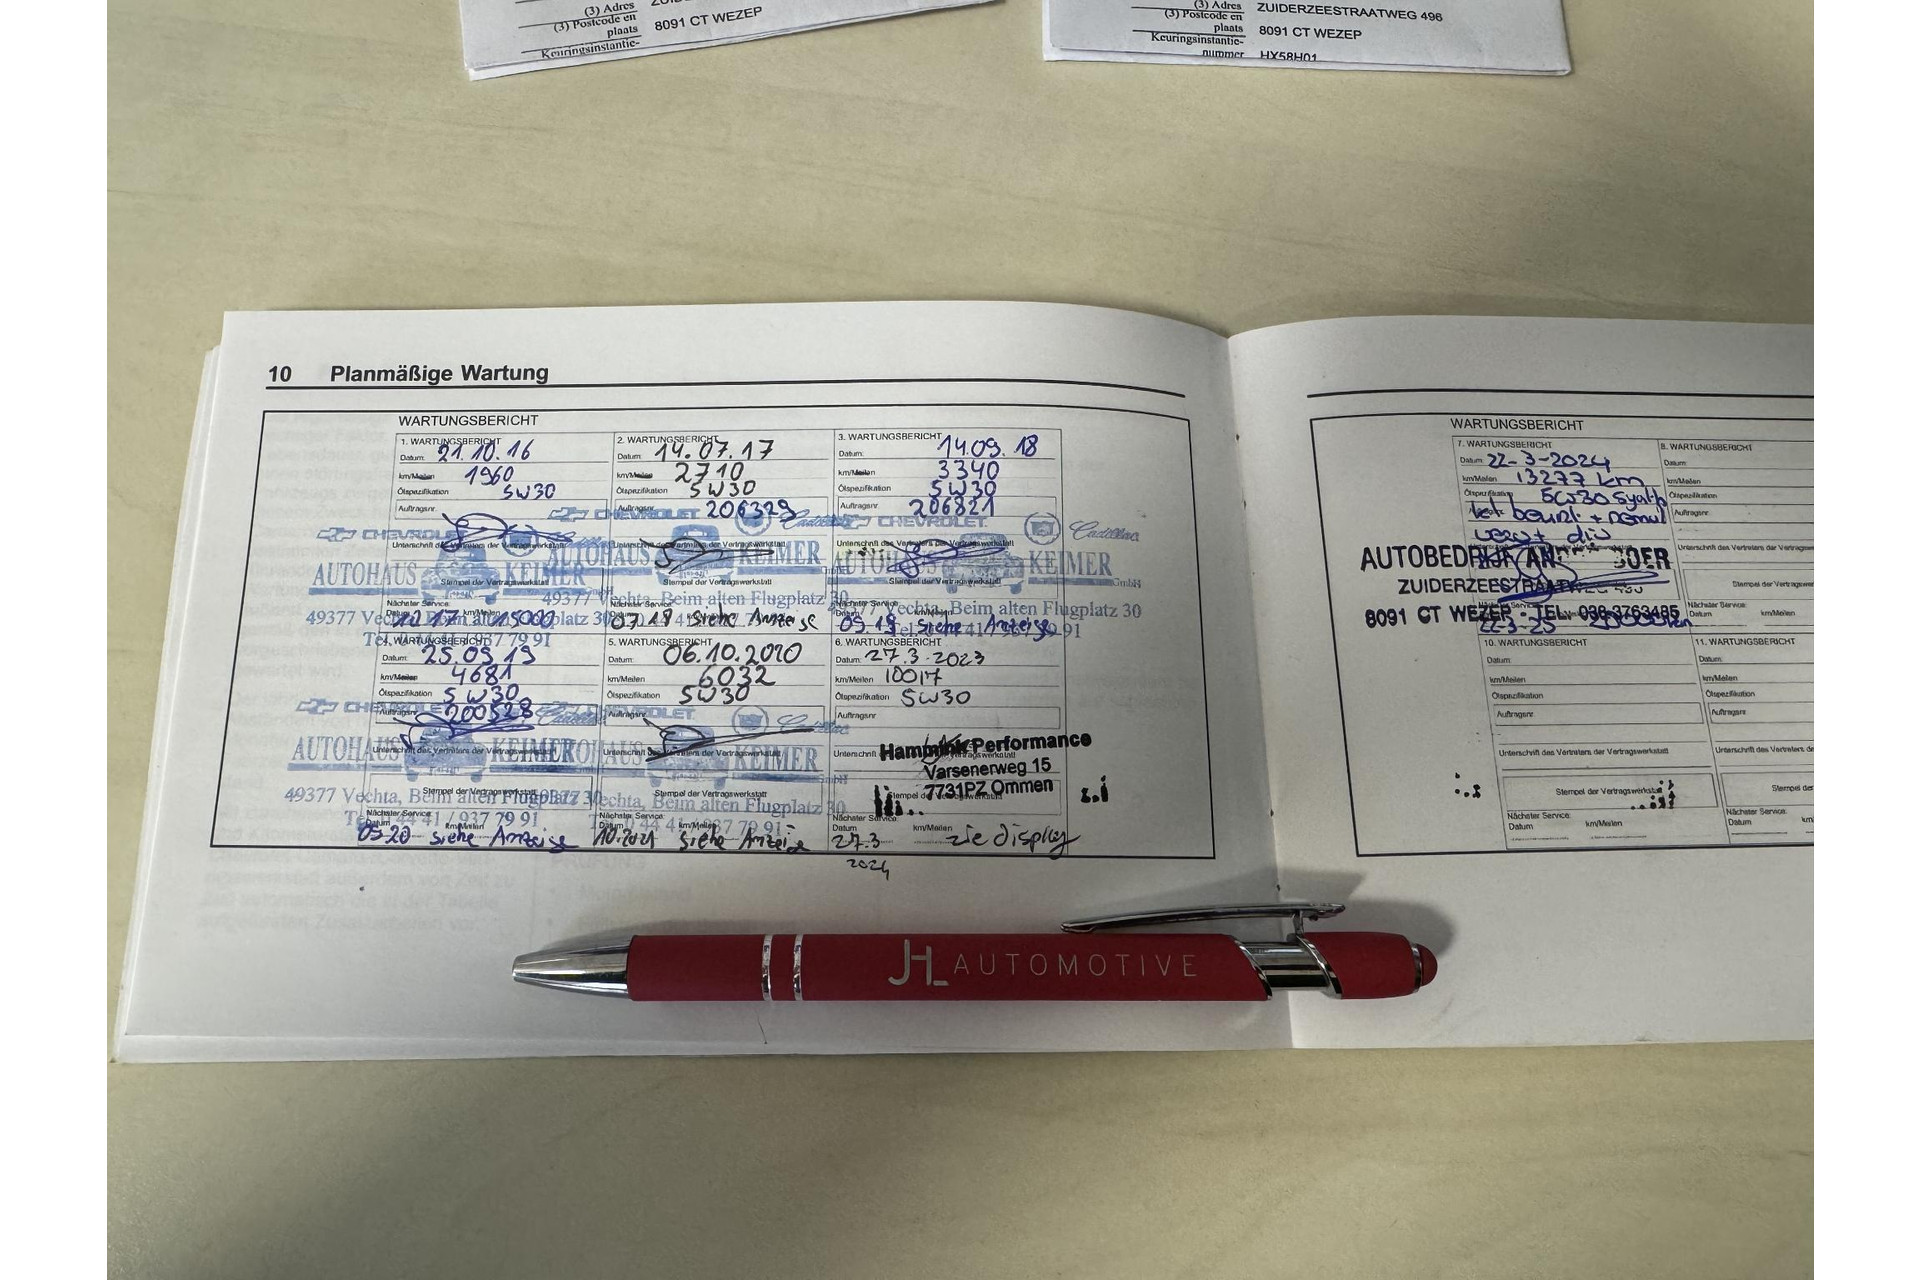 (3) Adres
(3) Postcode en
plaats
8091 CT WEZEP
Keuringsinstantie-
(3) Adres
ZUIDERZEESTRAATWEG 496
(3) Postcode en
plaats
8091 CT WEZEP
Keuringsinstantie-
nummer
HX58H01
10 Planmäßige Wartung
WARTUNGSBERICHT
1. WARTUNGSBERICHT
Datum: 21.10.16
km/Meilen 1960
Ölspezifikation 5W30
Auftragsnr.
CHEVROLET
Unterschrift des Vertreters der Vertragswerkstatt
AUTOHAUS KEIMER
Stempel der Vertragswerkstatt
49377 Vechta, Beim alten Flugplatz 30
Nächster Service:
Datum km/Meilen
2. WARTUNGSBERICHT
Datum: 14.07.17
km/Meilen 2710
Ölspezifikation 5W30
Auftragsnr. 206329
CHEVROLET Cadillac
AUTOHAUS KEIMER
Stempel der Vertragswerkstatt
49377 Vechta, Beim alten Flugplatz 30
Nächster Service:
07.18 siehe Anzeige
3. WARTUNGSBERICHT
Datum: 14.09.18
km/Meilen 3340
Ölspezifikation 5W30
Auftragsnr. 206821
CHEVROLET Cadillac
Unterschrift des Vertreters der Vertragswerkstatt
AUTOHAUS KEIMER GmbH
Stempel der Vertragswerkstatt
Vechta, Beim alten Flugplatz 30
Nächster Service:
09.19 siehe Anzeige
4. WARTUNGSBERICHT
Datum: 25.09.19
km/Meilen 4681
Ölspezifikation 5W30
Auftragsnr. 200528
CHEVROLET Cadillac
Unterschrift des Vertreters der Vertragswerkstatt
AUTOHAUS KEIMER
Stempel der Vertragswerkstatt
49377 Vechta, Beim alten Flugplatz 30
Tel. 0 44 41 / 937 79 91
Nächster Service:
Datum km/Meilen
09.20 siehe Anzeige
5. WARTUNGSBERICHT
Datum: 06.10.2020
km/Meilen 6032
Ölspezifikation 5W30
Auftragsnr.
CHEVROLET Cadillac
Unterschrift des Vertreters der Vertragswerkstatt
AUTOHAUS KEIMER GmbH
Stempel der Vertragswerkstatt
Vechta, Beim alten Flugplatz 30
Nächster Service:
Datum km/Meilen
10.2021 siehe Anzeige
6. WARTUNGSBERICHT
Datum: 27.3.2023
km/Meilen 10017
Ölspezifikation 5W30
Auftragsnr.
Hammink Performance
Varsenerweg 15
7731PZ Ommen
Stempel der Vertragswerkstatt
Nächster Service:
Datum km/Meilen
27.3 zie display
2024
WARTUNGSBERICHT
7. WARTUNGSBERICHT
Datum: 22-3-2024
km/Meilen 13277 km
Ölspezifikation 5W30
AUTOBEDRIJF
ZUIDERZEESTRAATWEG
8091 CT WEZEP - TEL. 038-3763485
22-3-25
8. WARTUNGSBERICHT
Datum:
km/Meilen
Ölspezifikation
Auftragsnr.
Unterschrift des Vertreters der Vertragswerkstatt
Stempel der Vertragswerks
Nächster Service:
Datum km/Meilen
10. WARTUNGSBERICHT
Datum:
km/Meilen
Ölspezifikation
Auftragsnr.
Unterschrift des Vertreters der Vertragswerkstatt
Stempel der Vertragswerkstatt
Nächster Service:
Datum km/Meilen
11. WARTUNGSBERICHT
Datum:
km/Meilen
Ölspezifikation
Auftragsnr.
Unterschrift des Vertreters de
Stempel des
Nächster Service:
Datum km/M
JHL AUTOMOTIVE